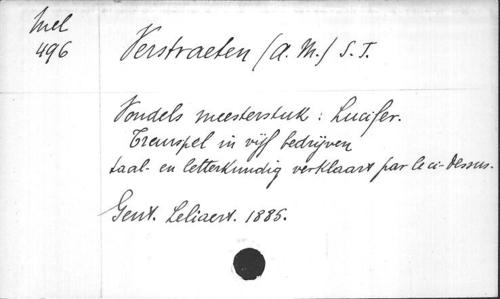 Mel
496
Verstraeten (A. M.) S. J.
Vondels meesterstuk : Lucifer.
Treurspel in vijf bedrijven
taal- en letterkundig verklaart par le ci-dessus.
Gent. Leliaert. 1885.